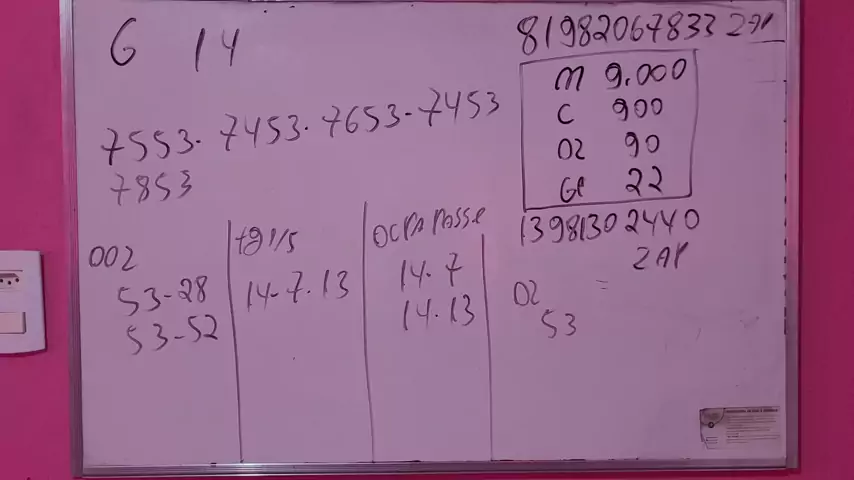 G 14
81982067833 ZAP
M 9.000
C 900
02 90
GP 22
7553. 7453. 7653-7453
7853
13981302440
ZAP
002
53-28
53-52
14-7.13
OCPA PASSE
14.7
14.13
02
53